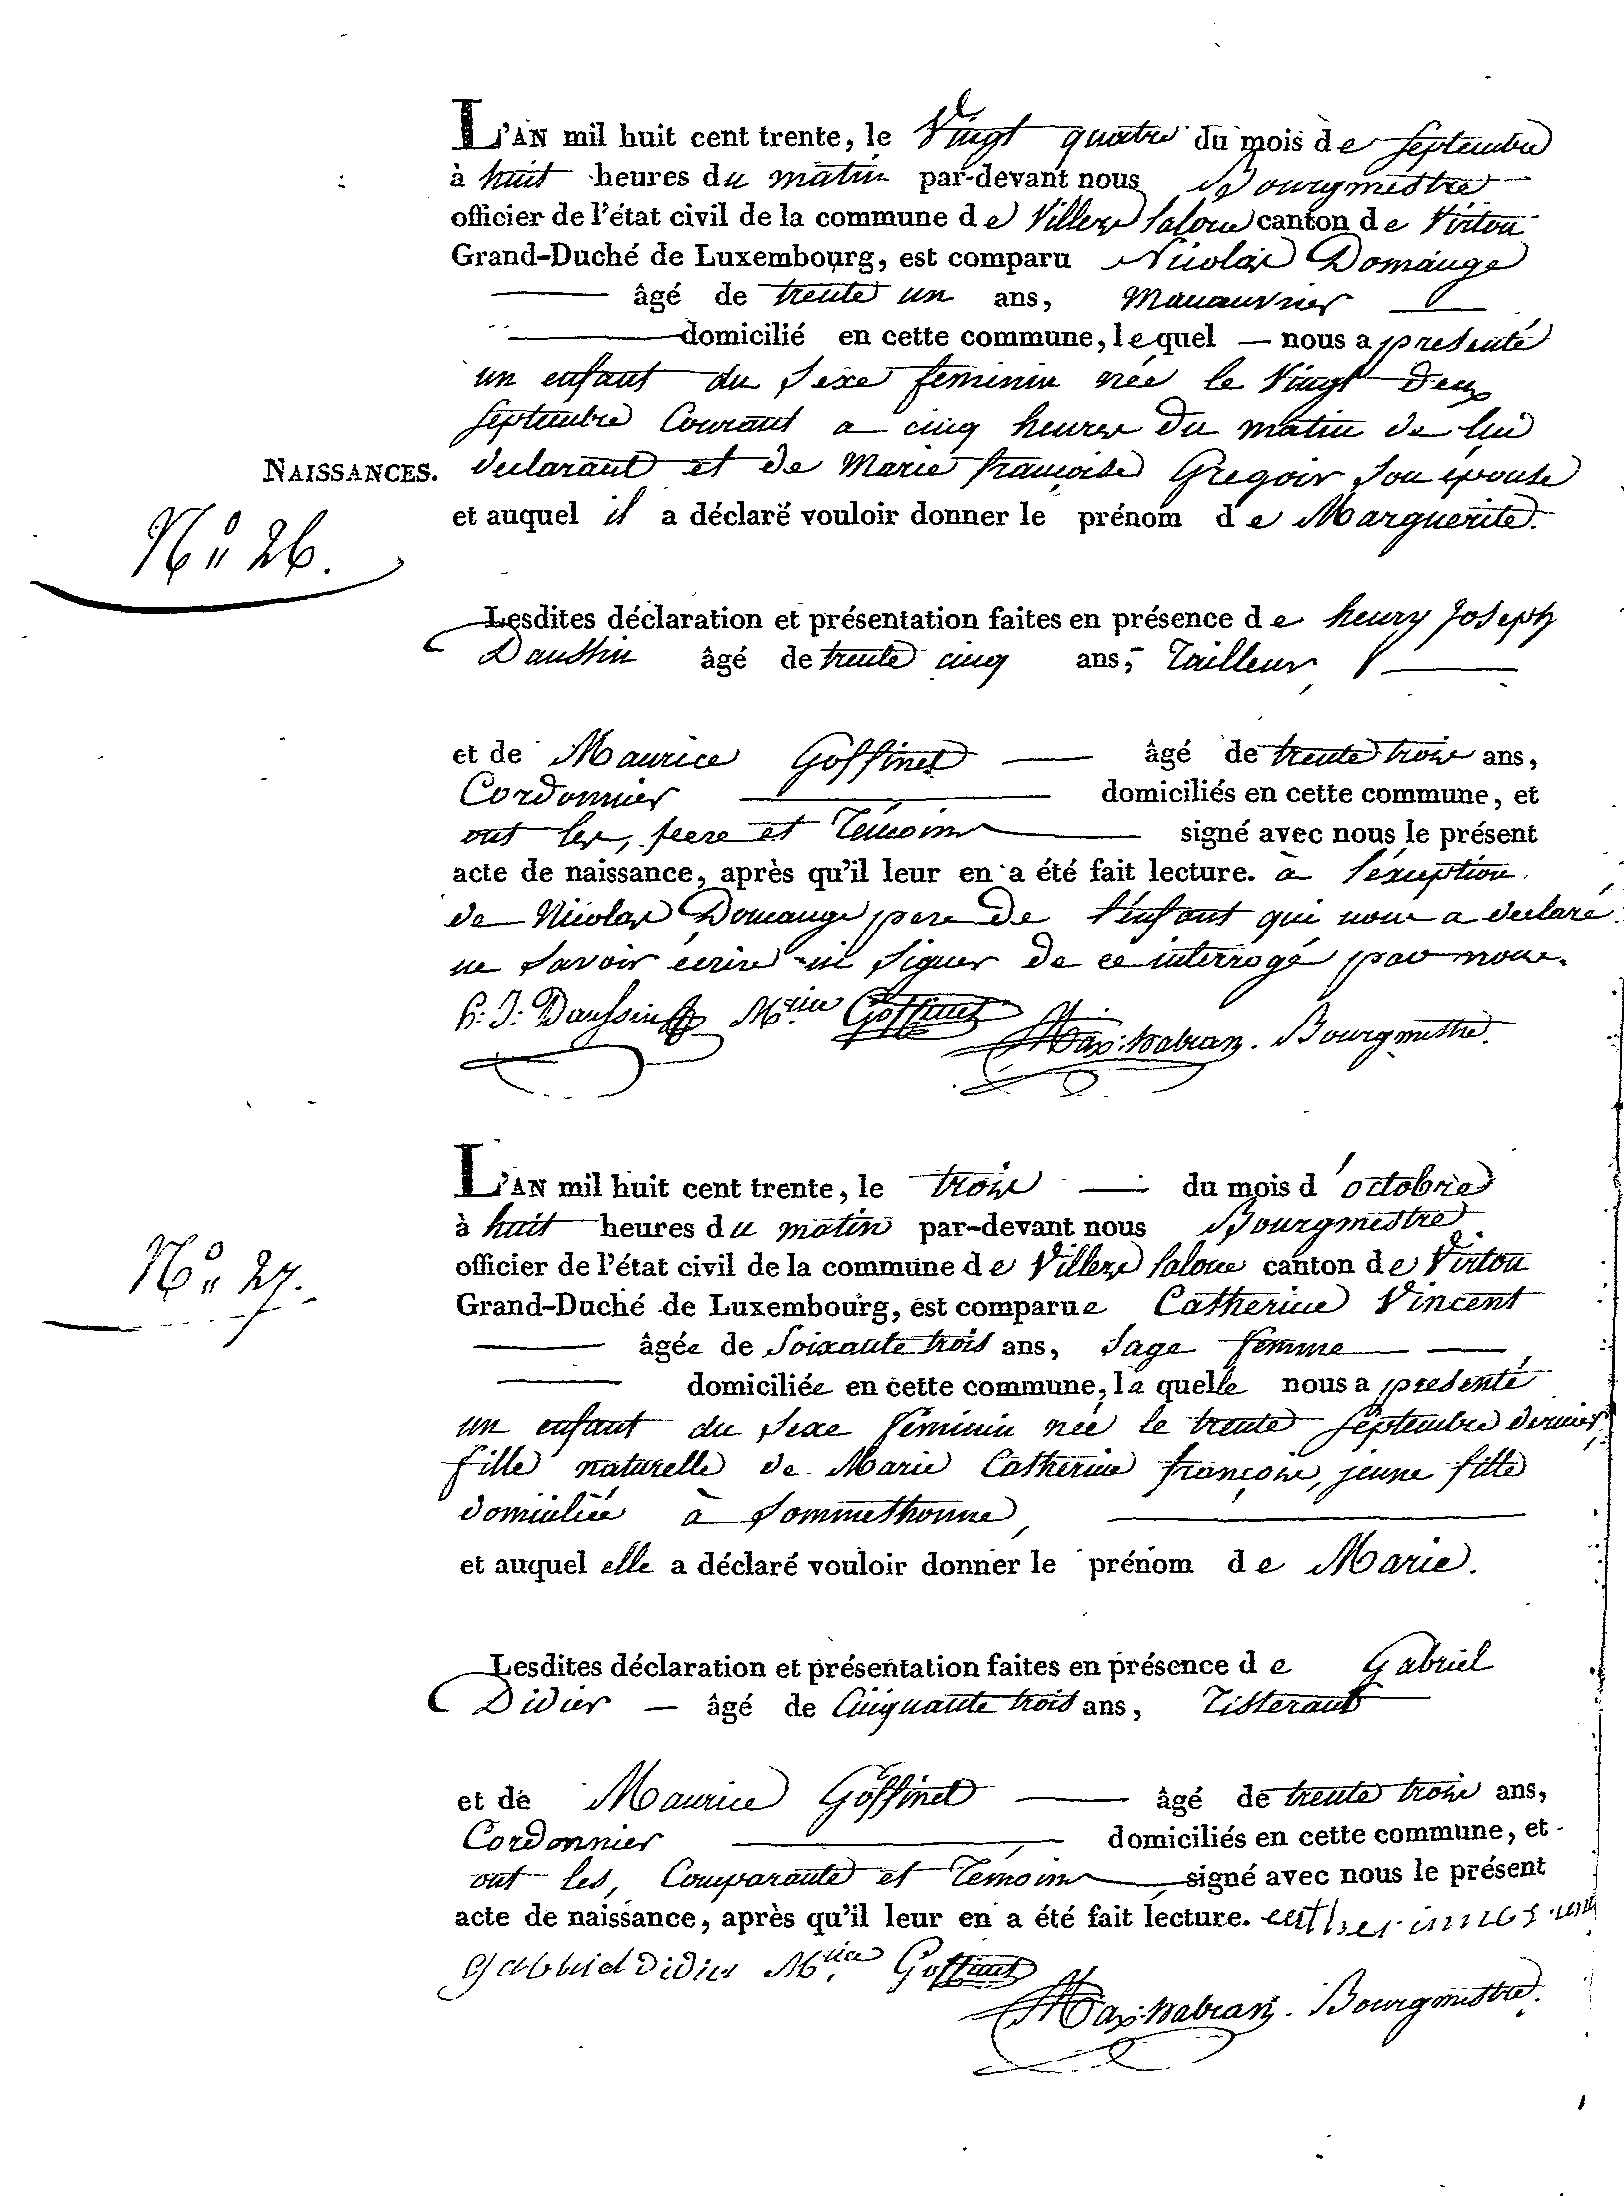 L'AN mil huit cent trente, le Vingt quatre du mois de septembre
à huit heures du matin par-devant nous Bourgmestre
officier de l'état civil de la commune de Villers laloue canton de Virton
Grand-Duché de Luxembourg, est comparu Nicolas Domange
âgé de trente un ans, Manouvrier
domicilié en cette commune, lequel nous a presenté
un enfant du sexe feminin née le Vingt Deux
septembre Courant a cinq heures Du matin de lui
declarant et de Marie françoise Gregoir son épouse
NAISSANCES.
et auquel il a déclaré vouloir donner le prénom de Marguerite.
No 26.
Lesdites déclaration et présentation faites en présence de henry Joseph
Daussin âgé de trente cinq ans, Tailleur
et de Maurice Goffinet âgé de trente trois ans,
Cordonnier domiciliés en cette commune, et
ont les, peere et Témoins signé avec nous le présent
acte de naissance, après qu'il leur en a été fait lecture. à l'exception
de Nicolas Domange pere De l'enfant qui nous a declaré
ne savoir écrire ni signer De ce interrogé par nous.
h: J: Daussin M.rice Goffinet Max: habran. Bourgmestre.
L'AN mil huit cent trente, le trois du mois d'octobre
à huit heures du matin par-devant nous Bourgmestre
No 27.
officier de l'état civil de la commune de Villers laloue canton de Virton
Grand-Duché de Luxembourg, est comparue Catherine Vincent
âgée de Soixante trois ans, Sage femme
domiciliée en cette commune, laquelle nous a presenté
un enfant du sexe féminin née le trente septembre dernier,
fille naturelle de Marie Catherine françois, jeune fille
domiciliée à Sommethonne,
et auquel elle a déclaré vouloir donner le prénom de Marie.
Lesdites déclaration et présentation faites en présence de Gabriel
Didier âgé de Cinquante trois ans, Tisserant
et de Maurice Goffinet âgé de trente trois ans,
Cordonnier domiciliés en cette commune, et
ont les, Comparante et Témoins signé avec nous le présent
acte de naissance, après qu'il leur en a été fait lecture.
gabriel Didier M.rice Goffinet
Max: habran. Bourgmestre.